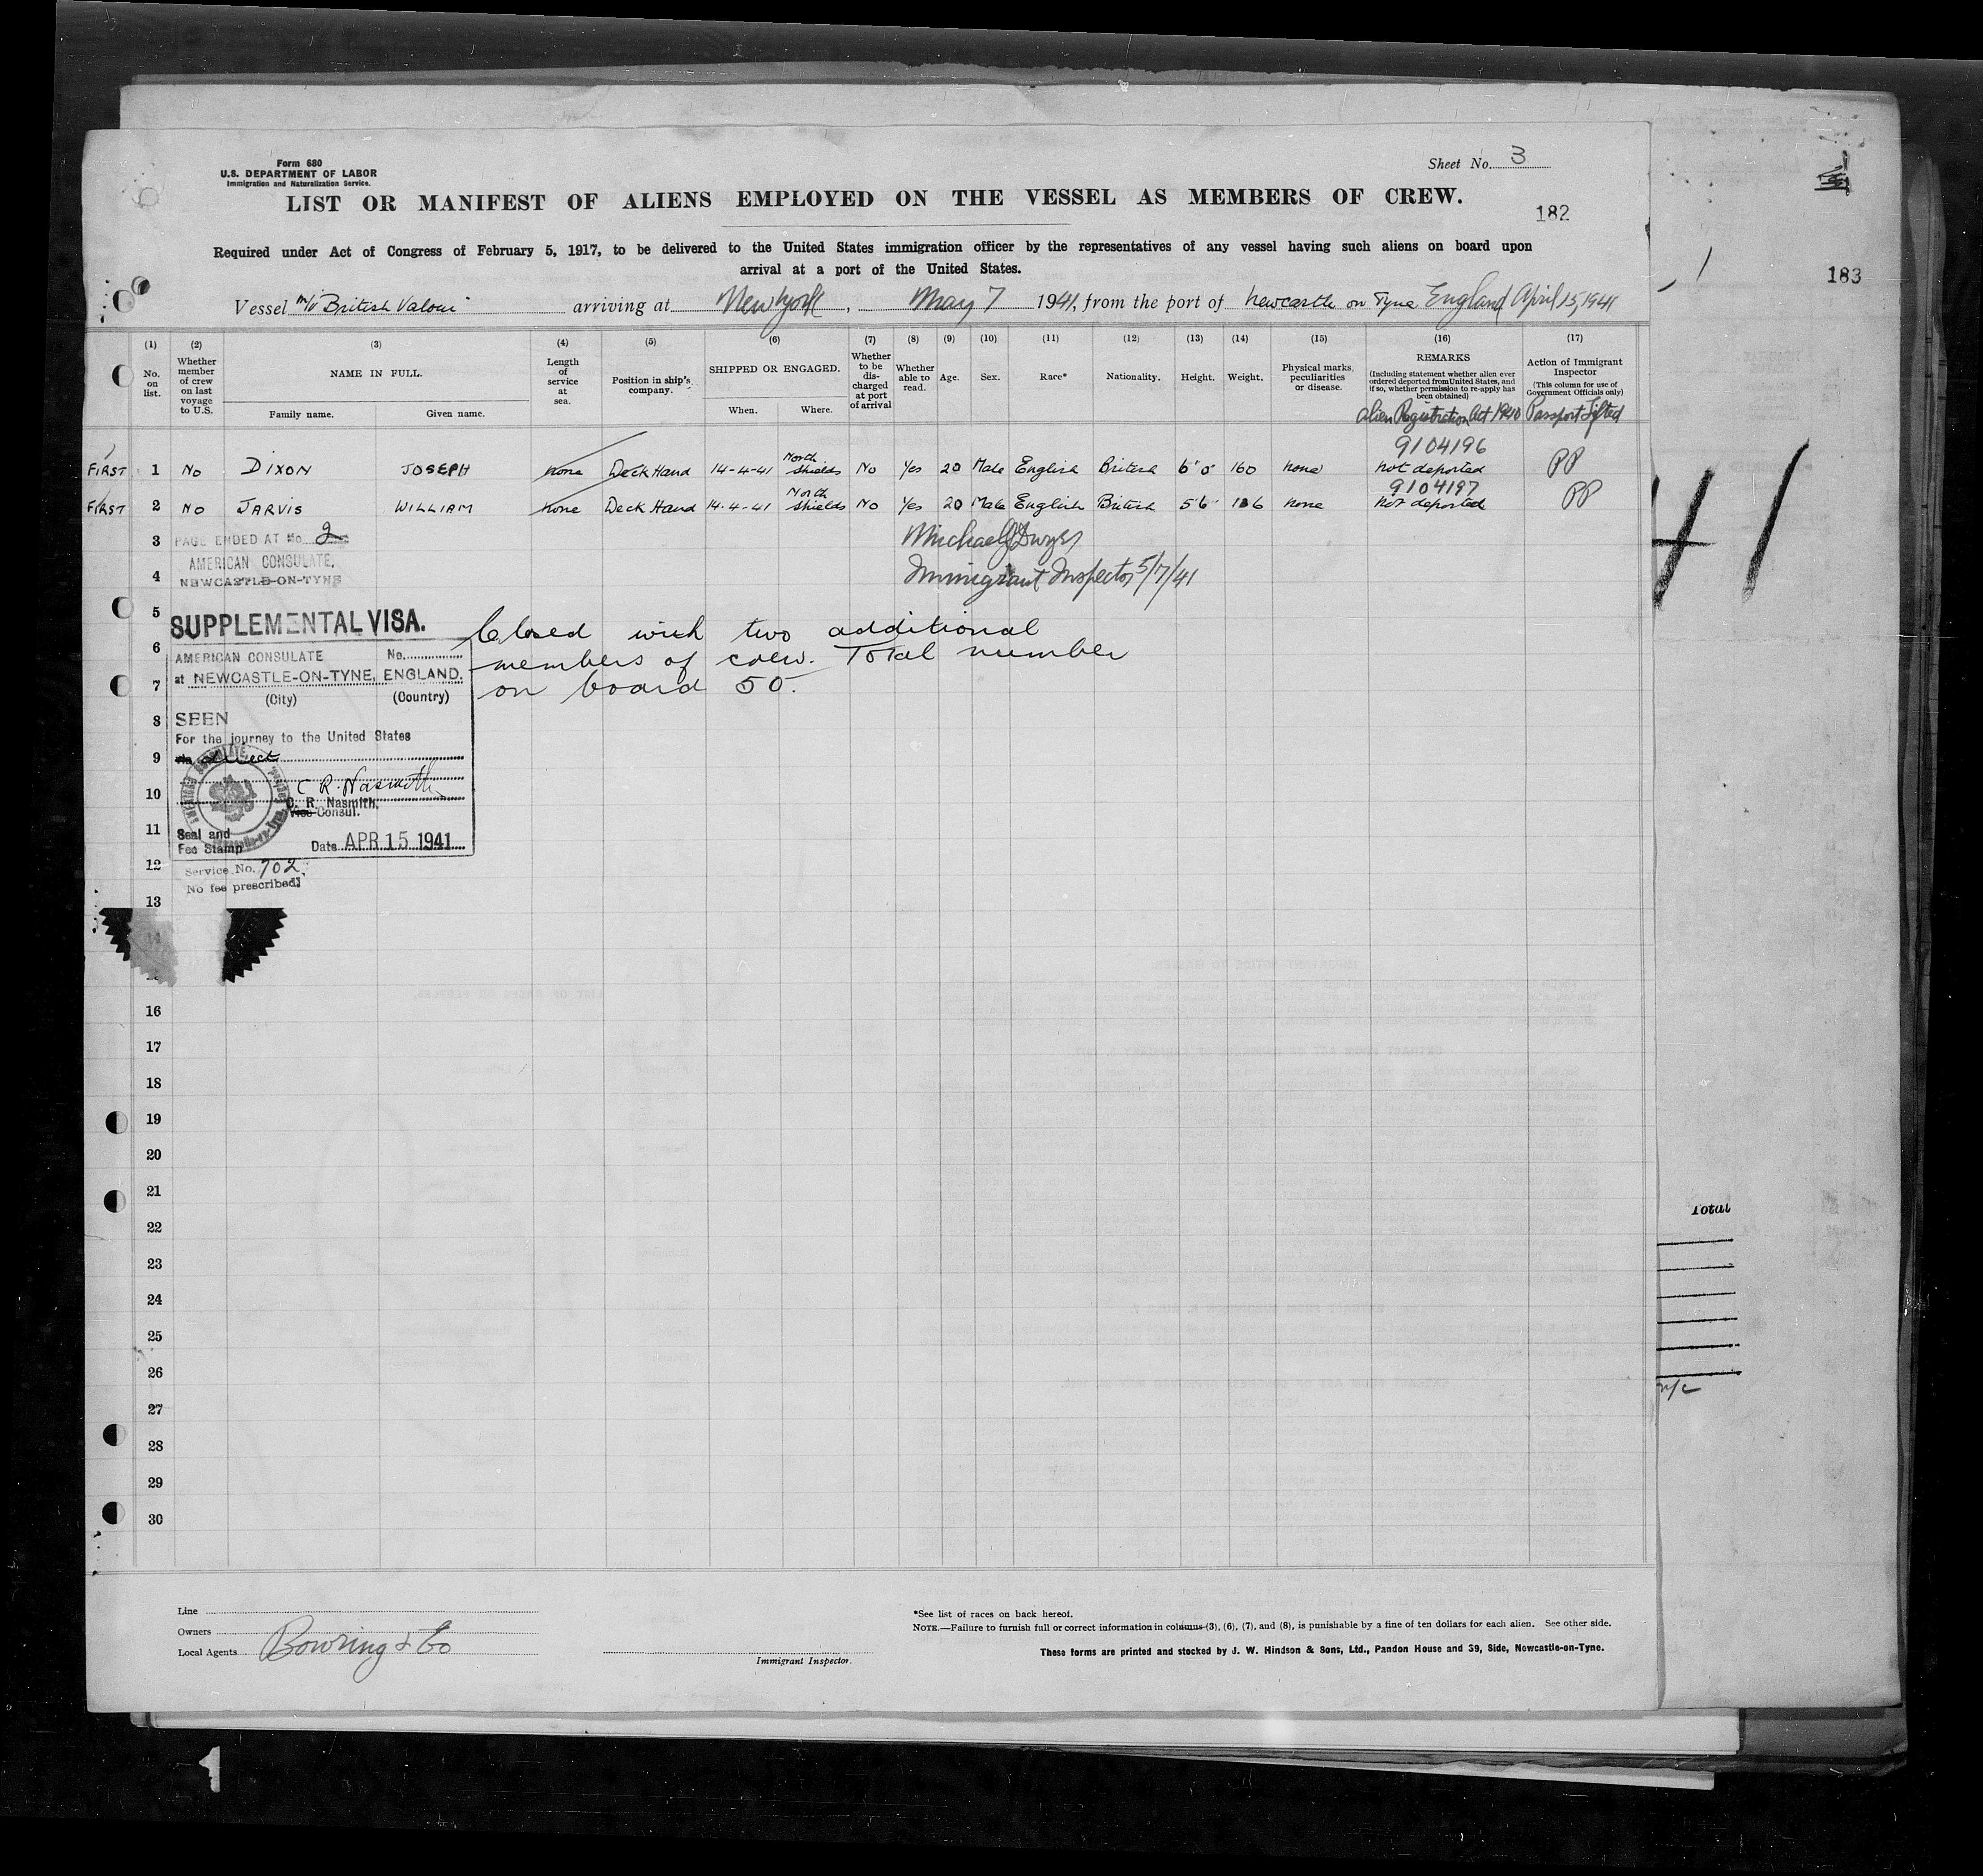 Form 680
U.S. DEPARTMENT OF LABOR
Immigration and Naturalization Service.
Sheet No. 3
LIST OR MANIFEST OF ALIENS EMPLOYED ON THE VESSEL AS MEMBERS OF CREW.
182
Required under Act of Congress of February 5, 1917, to be delivered to the United States immigration officer by the representatives of any vessel having such aliens on board upon
arrival at a port of the United States.
183
Vessel M/V British Valour arriving at New York, May 7 1941, from the port of Newcastle on Tyne England April 15, 1941
(1) (2) (3) (4) (5) (6) (7) (8) (9) (10) (11) (12) (13) (14) (15) (16) (17)
No. on list.
Whether member of crew on last voyage to U.S.
NAME IN FULL.
Family name. Given name.
Length of service at sea.
Position in ship's company.
SHIPPED OR ENGAGED.
When. Where.
Whether to be discharged at port of arrival
Whether able to read.
Age.
Sex.
Race*
Nationality.
Height.
Weight.
Physical marks, peculiarities or disease.
REMARKS
(Including statement whether alien ever ordered deported from United States, and if so, whether permission to re-apply has been obtained)
Alien Registration Act 1940
Action of Immigrant Inspector
(This column for use of Government Officials only)
Passport Lifted
9104196
FIRST 1 No DIXON JOSEPH none Deck Hand 14-4-41 North Shields No Yes 20 Male English British 6'0" 160 none not deported PP
9104197
FIRST 2 No JARVIS WILLIAM none Deck Hand 14-4-41 North Shields No Yes 20 Male English British 5'6" 136 none not deported PP
3 PAGE ENDED AT No. 2
Michael J Dwyer
AMERICAN CONSULATE,
4 NEWCASTLE-ON-TYNE
Immigrant Inspector 5/7/41
5
SUPPLEMENTAL VISA.
Closed with two additional
6 AMERICAN CONSULATE No.
members of crew. Total number
7 at NEWCASTLE-ON-TYNE, ENGLAND.
on board 50.
(City) (Country)
8 SEEN
For the journey to the United States
9 Via direct
C R. Nasmith
10 C. R. Nasmith,
Vice Consul.
11 Seal and
Fee Stamp Date APR 15 1941
12 Service No. 702.
No fee prescribed.
13
14
16
17
18
19
20
21
22
23
24
25
26
27
28
29
30
Total
Line
Owners
Local Agents Bowring & Co
Immigrant Inspector.
*See list of races on back hereof.
NOTE.—Failure to furnish full or correct information in columns (3), (6), (7), and (8), is punishable by a fine of ten dollars for each alien. See other side.
These forms are printed and stocked by J. W. Hindson & Sons, Ltd., Pandon House and 39, Side, Newcastle-on-Tyne.